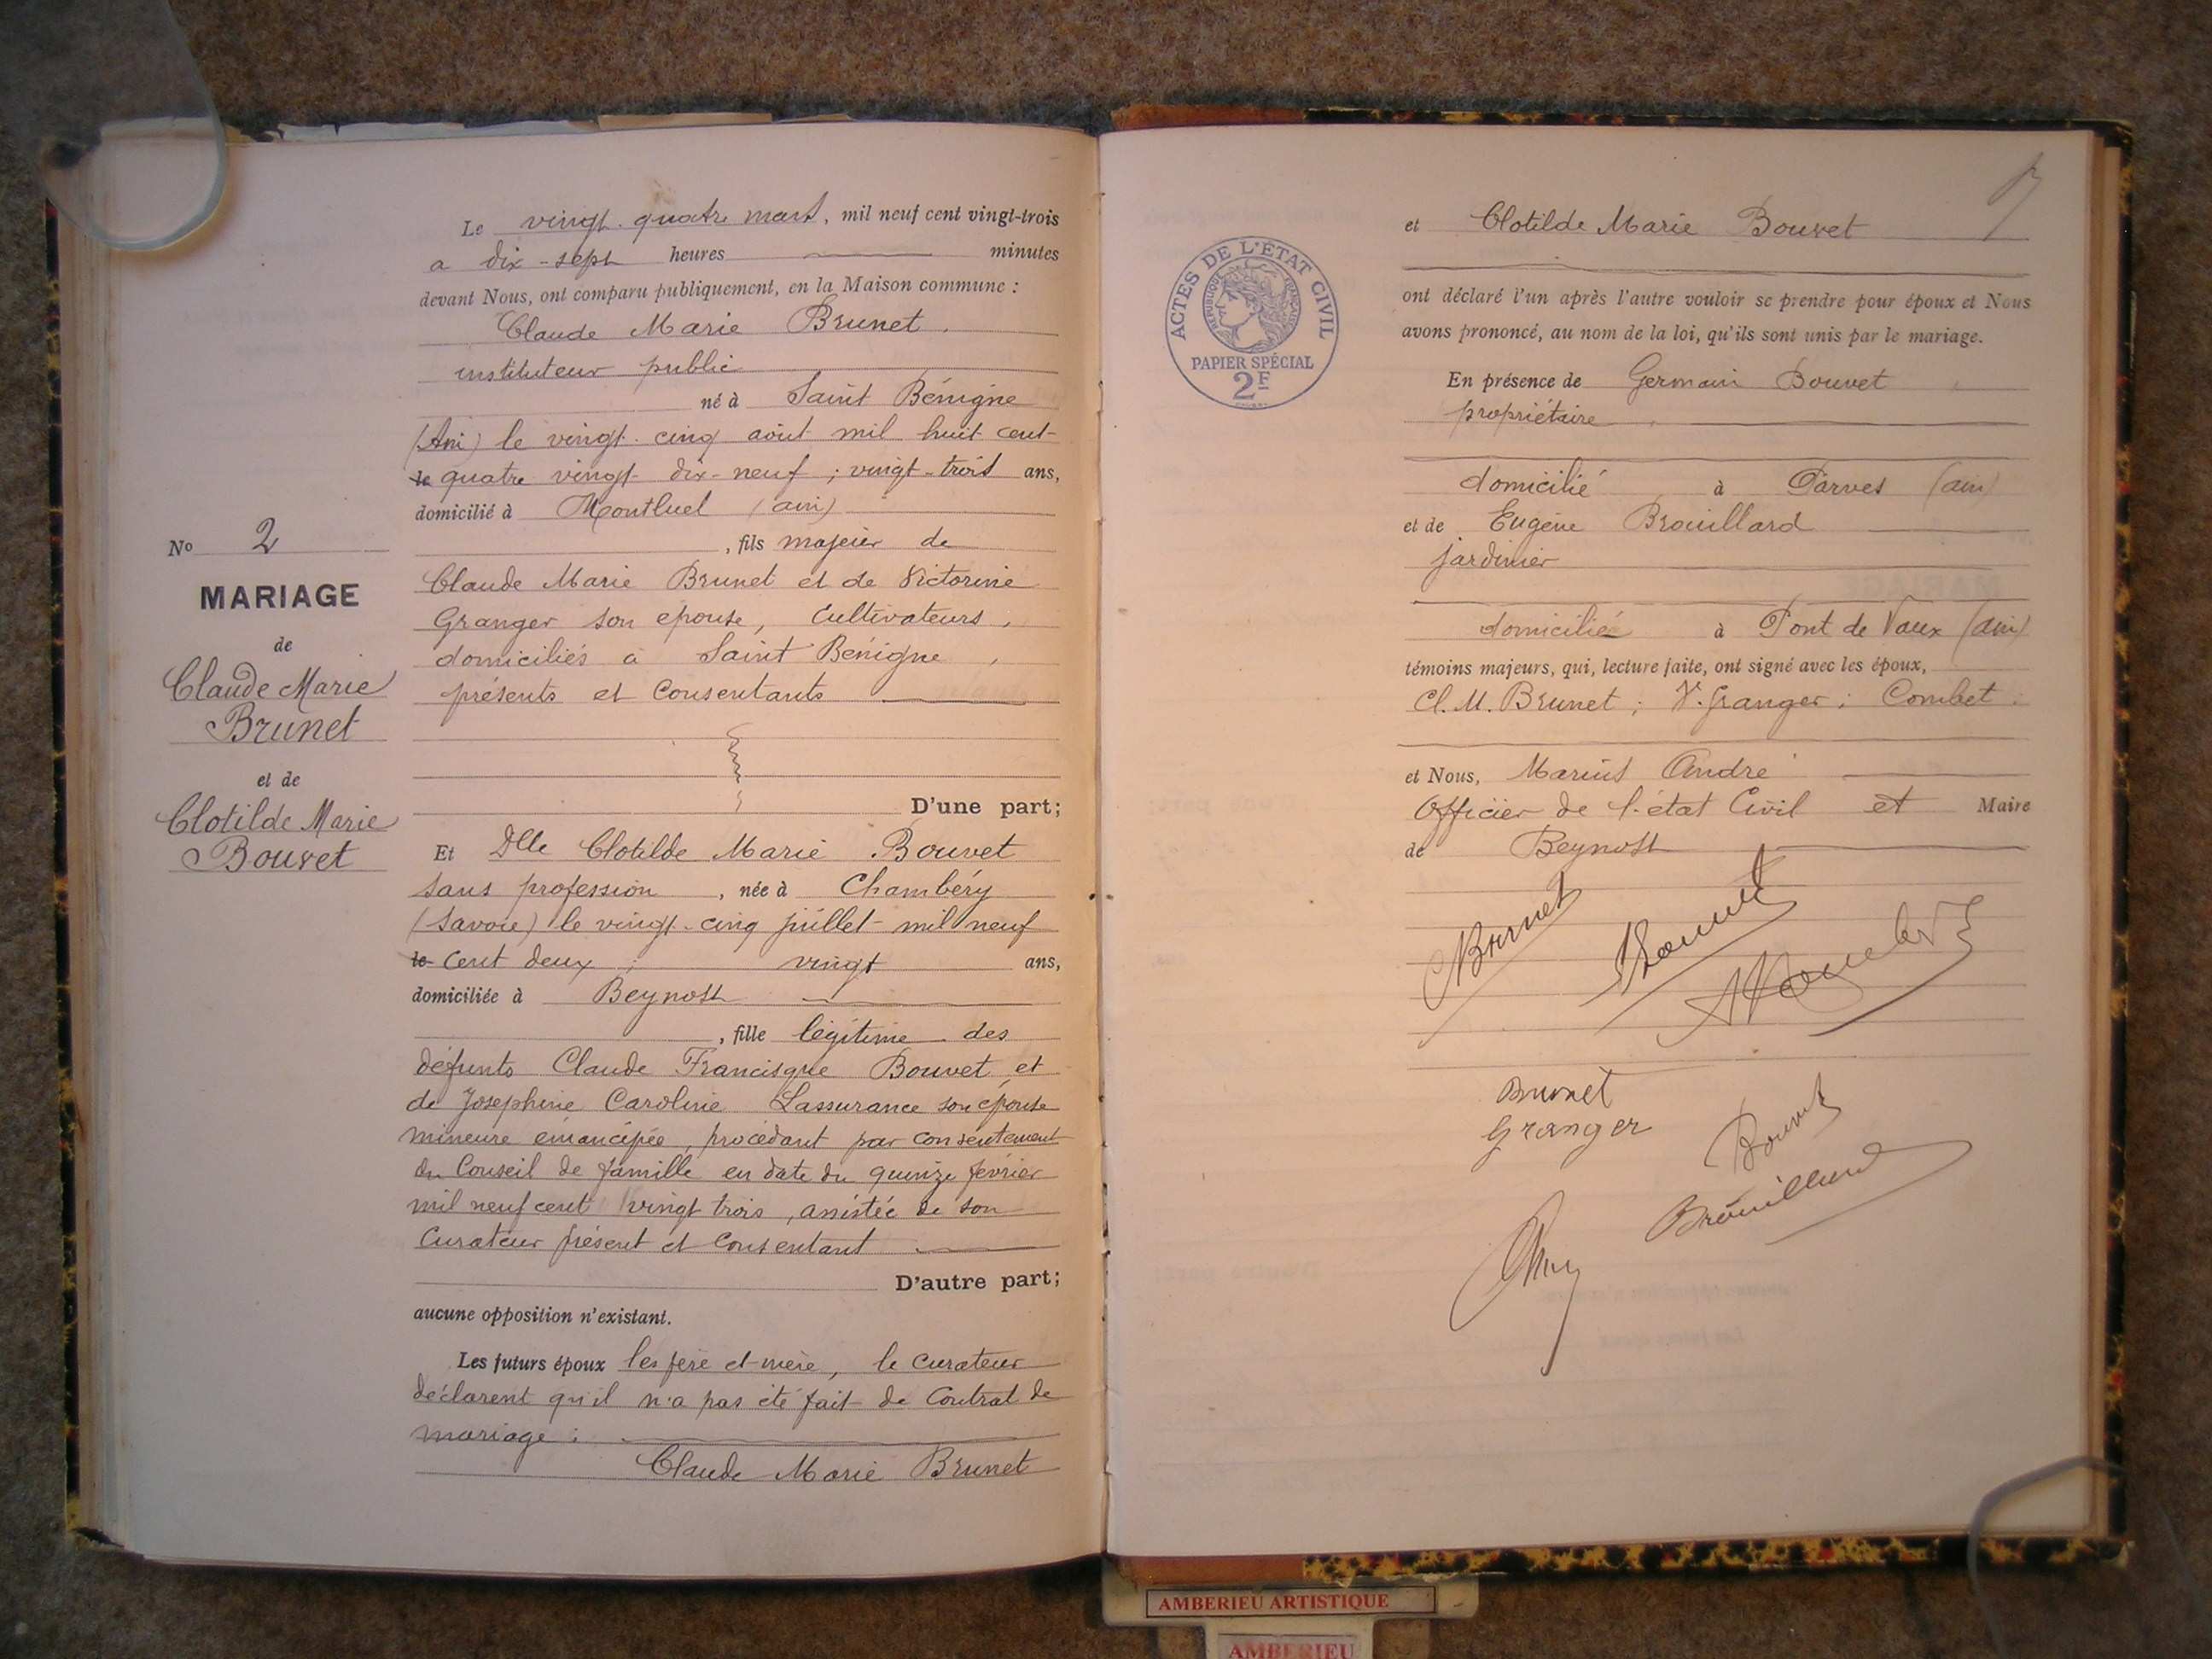 Le vingt-quatre mars, mil neuf cent vingt-trois
a dix-sept heures minutes
devant Nous, ont comparu publiquement, en la Maison commune :
Claude Marie Brunet,
instituteur public
né à Saint Bénigne
(Ain) le vingt-cinq août mil huit cent
le quatre vingt dix-neuf ; vingt-trois ans,
domicilié à Montluel (ain)
, fils majeur de
Claude Marie Brunet et de Victorine
Granger son épouse, cultivateurs,
domiciliés à Saint Bénigne,
présents et consentants
D'une part;
Et Dlle Clotilde Marie Bouvet
sans profession, née à Chambéry
(Savoie) le vingt-cinq juillet mil neuf
le cent deux ; vingt ans,
domiciliée à Beynost
, fille légitime des
défunts Claude Francisque Bouvet et
de Joséphine Caroline Lassurance son épouse
mineure émancipée, procédant par consentement
du Conseil de famille en date du quinze février
mil neuf cent vingt trois, assistée de son
Curateur présent et consentant
D'autre part;
aucune opposition n'existant.
Les futurs époux les père et mère, le curateur
déclarent qu'il n'a pas été fait de contrat de
mariage :
Claude Marie Brunet
No 2
MARIAGE
de
Claude Marie
Brunet
et de
Clotilde Marie
Bouvet
ACTES DE L'ÉTAT CIVIL
RÉPUBLIQUE FRANÇAISE
PAPIER SPÉCIAL
2F
et Clotilde Marie Bouvet
ont déclaré l'un après l'autre vouloir se prendre pour époux et Nous
avons prononcé, au nom de la loi, qu'ils sont unis par le mariage.
En présence de Germain Bouvet
propriétaire
domicilié à Parves (ain)
et de Eugène Brouillard
jardinier
domicilié à Pont de Vaux (ain)
témoins majeurs, qui, lecture faite, ont signé avec les époux,
Cl. M. Brunet ; V. Granger ; Combet :
et Nous, Marius André
Officier de l'état Civil et Maire
de Beynost
Brunet
Brunet
Granger
Bouvet
Brouillard
AMBERIEU ARTISTIQUE
AMBERIEU